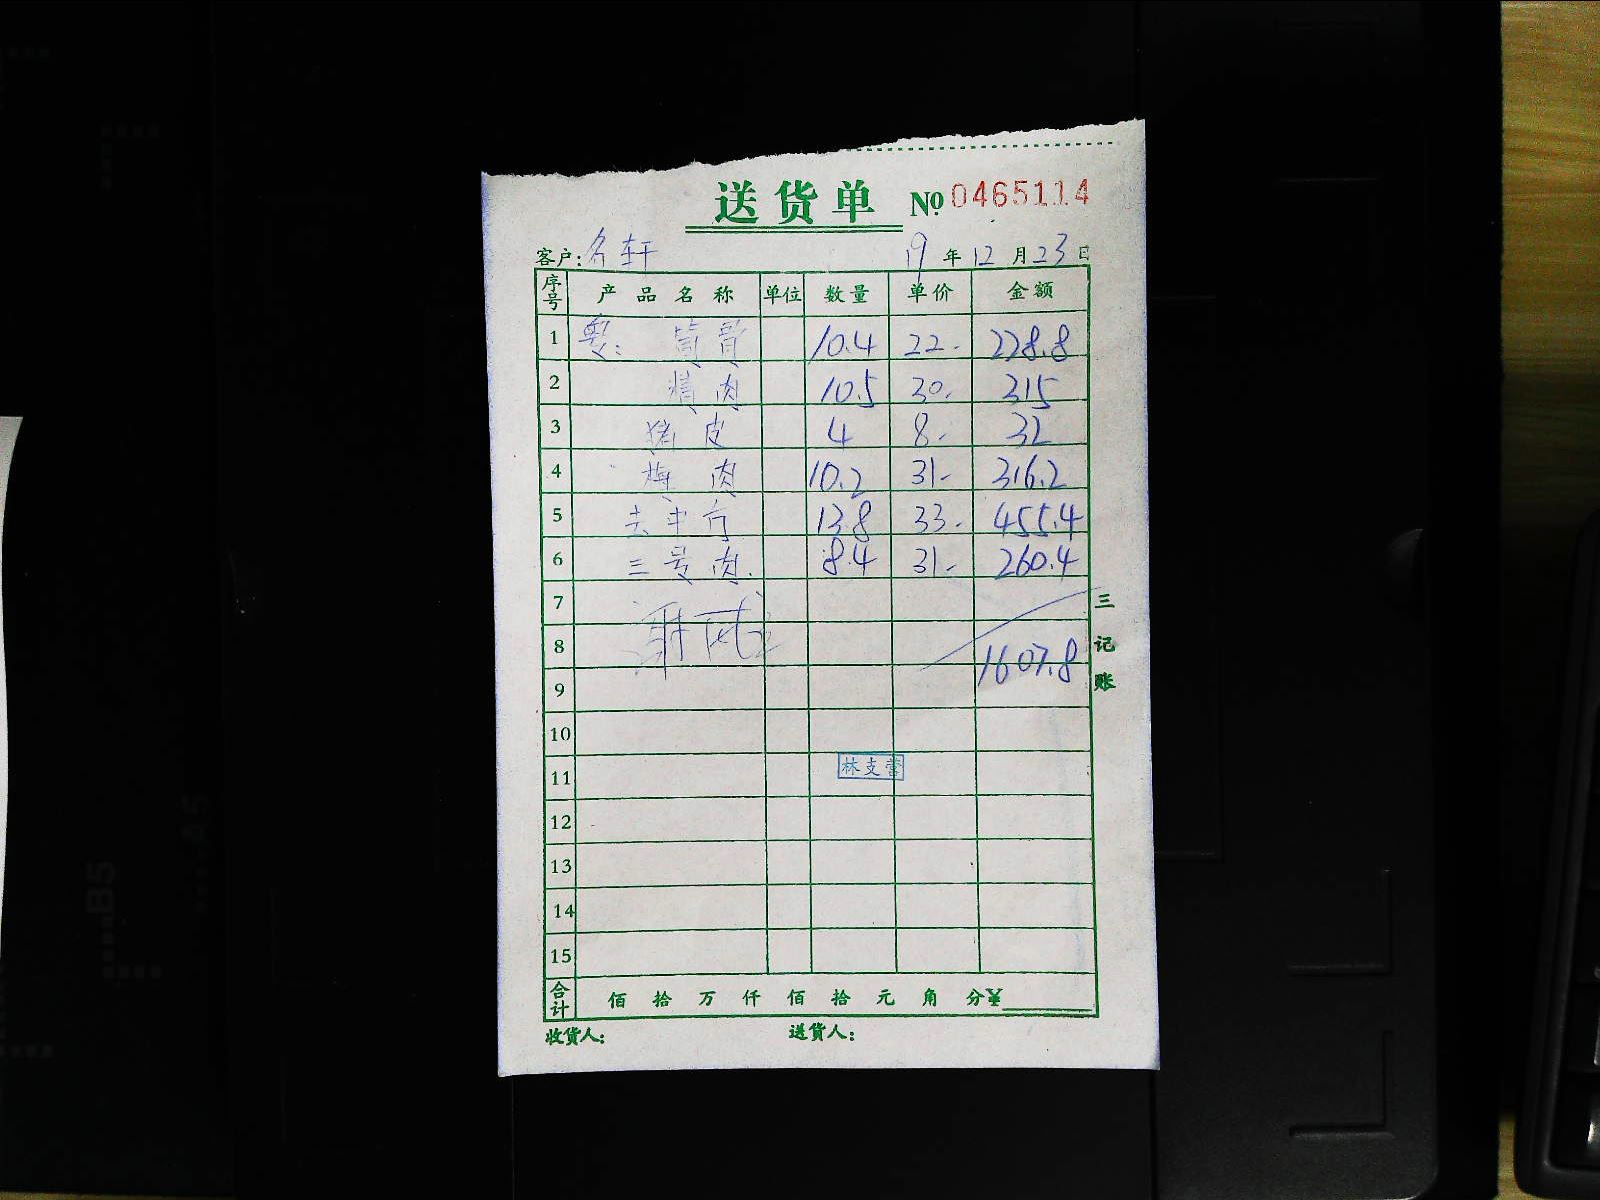 送货单 № 0465114
客户: 名轩 19 年 12 月 23 日
序号 产品名称 单位 数量 单价 金额
1 筒骨 10.4 22- 228.8
2 精肉 10.5 30- 315
3 猪皮 4 8- 32
4 梅肉 10.2 31- 316.2
5 13.8 33- 455.4
6 三号肉 8.4 31- 260.4
7
8
1607.8
9
10
11 林支蕾
12
13
14
15
合计 佰 拾 万 仟 佰 拾 元 角 分 ¥
收货人: 送货人:
三 记账
B5
A5